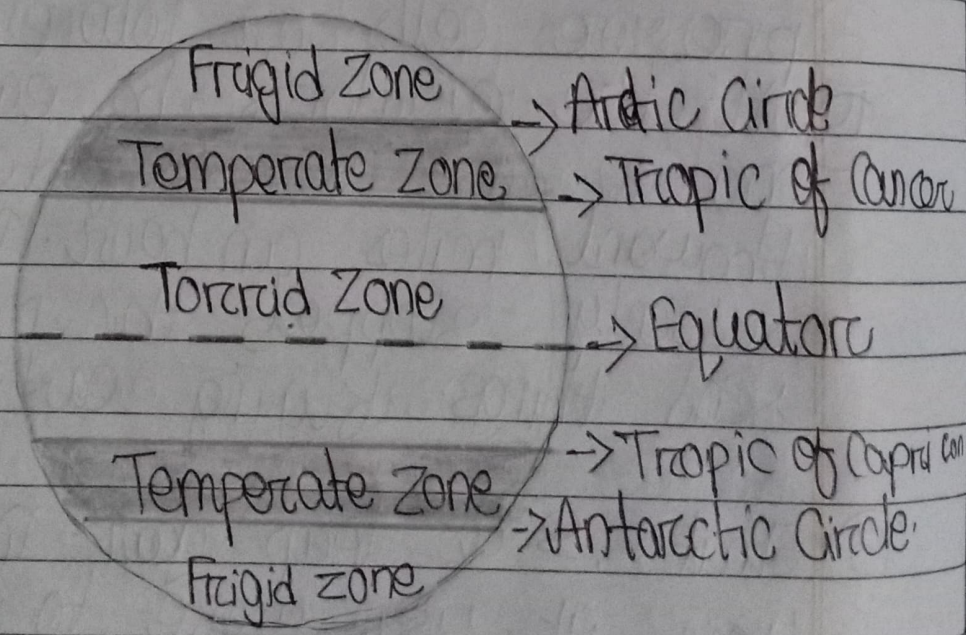 Frigid Zone
Arctic Circle
Temperate Zone
Tropic of Cancer
Torrid Zone
Equator
Tropic of Capricon
Temperate Zone
Antarctic Circle
Frigid zone